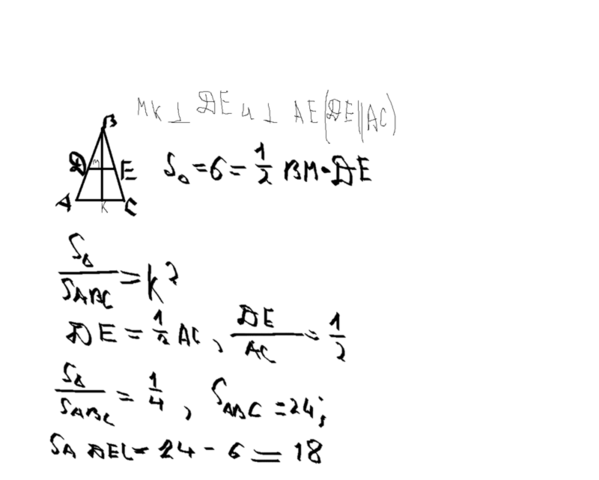 MK ⊥ DE и ⊥ AE (DE || AC)
B
D M E
S₀ = 6 = 1/2 BM · DE
A K C
S₀/SABC = K²
DE = 1/2 AC, DE/AC = 1/2
S₀/SABC = 1/4, SABC = 24;
SA DEC = 24 - 6 = 18